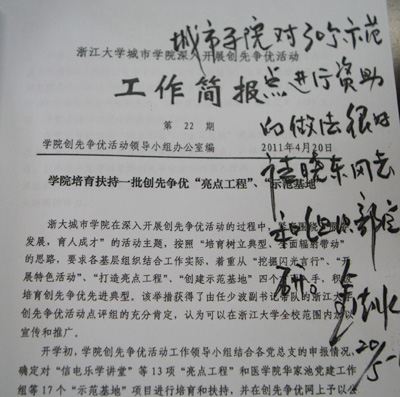 浙江大学城市学院深入开展创先争优活动
工作简报
第 22 期
学院创先争优活动领导小组办公室编 2011年4月20日
学院培育扶持一批创先争优“亮点工程”、“示范基地”
浙大城市学院在深入开展创先争优活动的过程中,
发展,育人成才”的活动主题,按照“培育树立典型、全面辐射带动”
的思路,要求各基层组织结合工作实际,着重从“挖掘闪光言行”、“开
展特色活动”、“打造亮点工程”、“创建示范基地”四个方面入手,积极
培育创先争优先进典型。该举措获得了由任少波副书记带队的浙江大
创先争优活动点评组的充分肯定,认为可以在浙江大学全校范围内加以
宣传和推广。
开学初,学院创先争优活动工作领导小组结合各党总支的申报情况,
确定对“信电乐学讲堂”等 13 项“亮点工程”和医学院华家池党建工作
组等 17 个“示范基地”项目进行培育和扶持,并在创先争优网上予以公
城市学院对30个示范
点进行资助
的做法很好
请晓东同志
和组织部